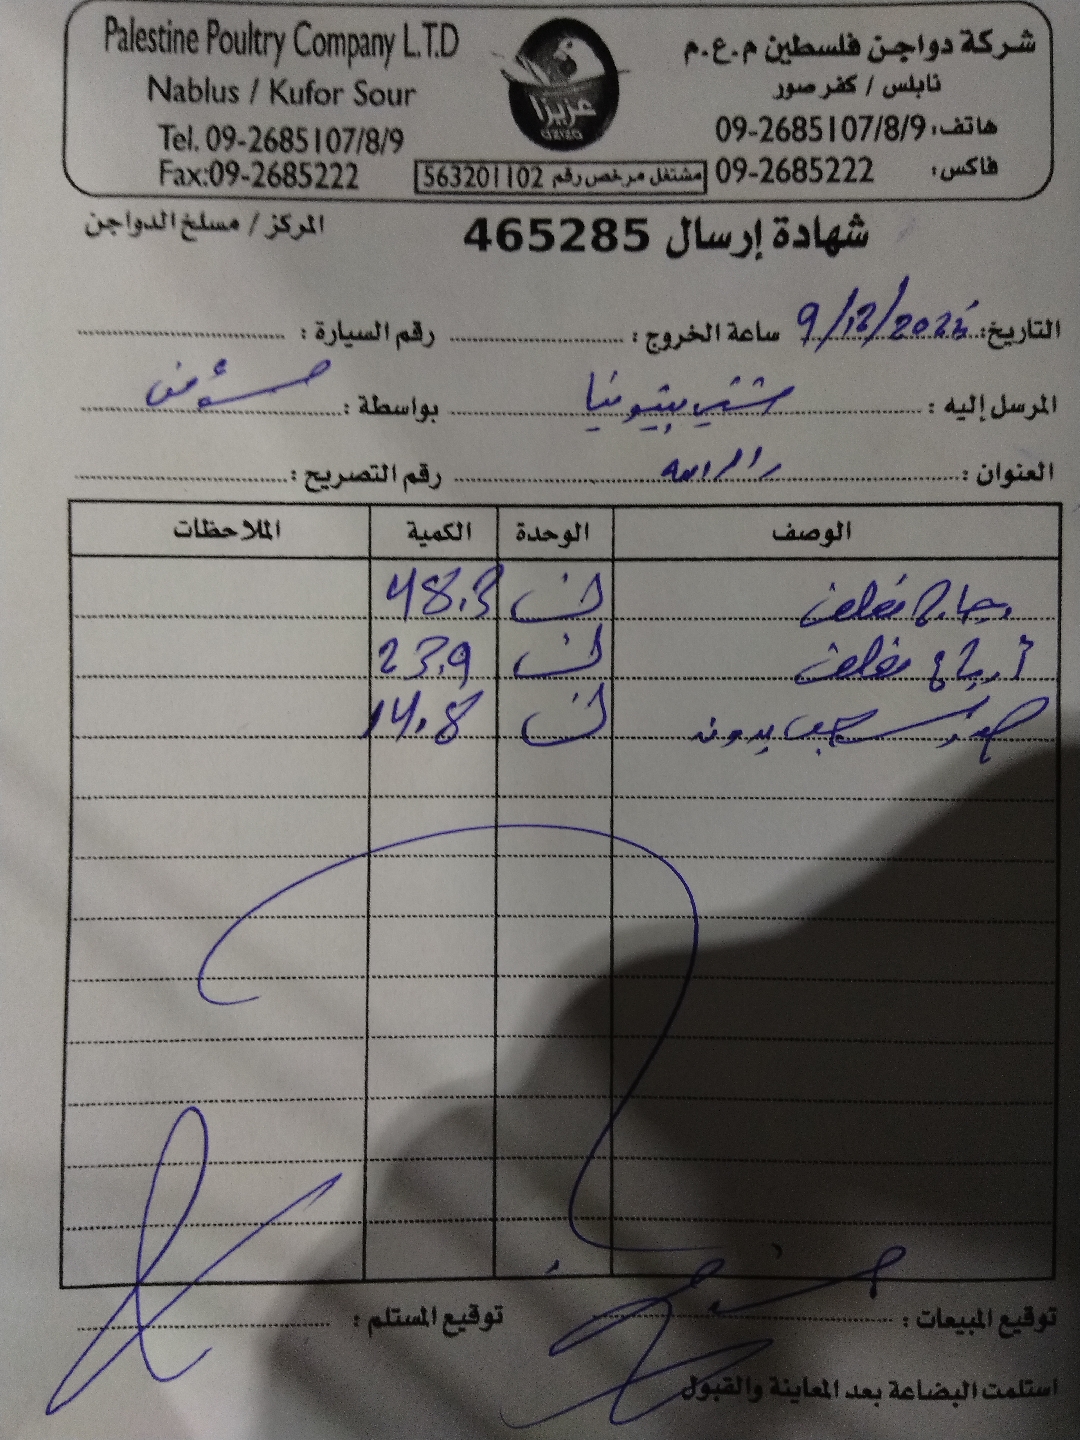 Palestine Poultry Company L.T.D
شركة دواجن فلسطين م.ع.م
Nablus / Kufor Sour
نابلس / كفر صور
Tel. 09-2685107/8/9
هاتف: 09-2685107/8/9
Fax:09-2685222
فاكس: 09-2685222
عزيزا
aziza
مشتغل مرخص رقم 563201102
شهادة إرسال 465285
المركز / مسلخ الدواجن
التاريخ: 9/12/202 ساعة الخروج: رقم السيارة:
المرسل إليه: بيتونيا بواسطة:
العنوان: رام الله رقم التصريح:
الوصف الوحدة الكمية الملاحظات
دجاج مغلف 48.3
أرباع مغلف 23.9
بدون 14.8
توقيع المبيعات: توقيع المستلم:
استلمت البضاعة بعد المعاينة والقبول